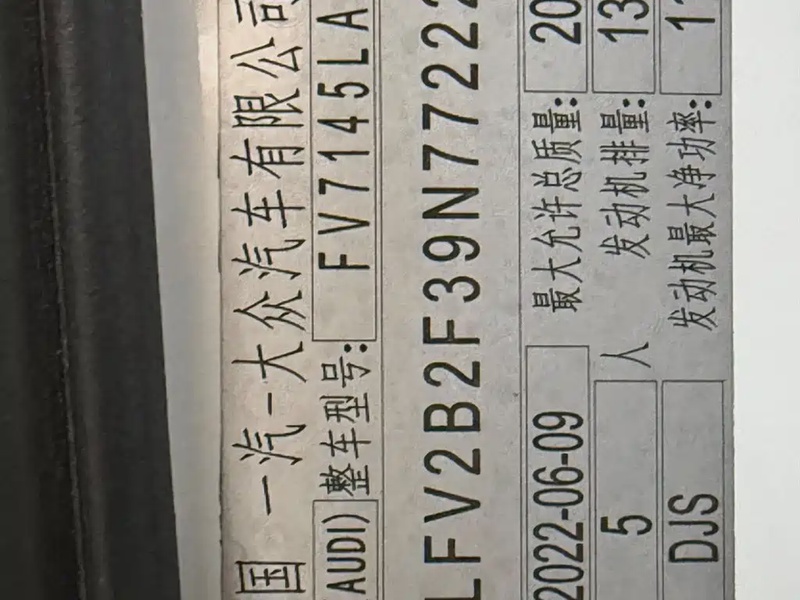 国 一汽-大众汽车有限公司
AUDI) 整车型号: FV7145LA
LFV2B2F39N77222
2022-06-09 最大允许总质量: 20
5 人 发动机排量: 13
DJS 发动机最大净功率: 11